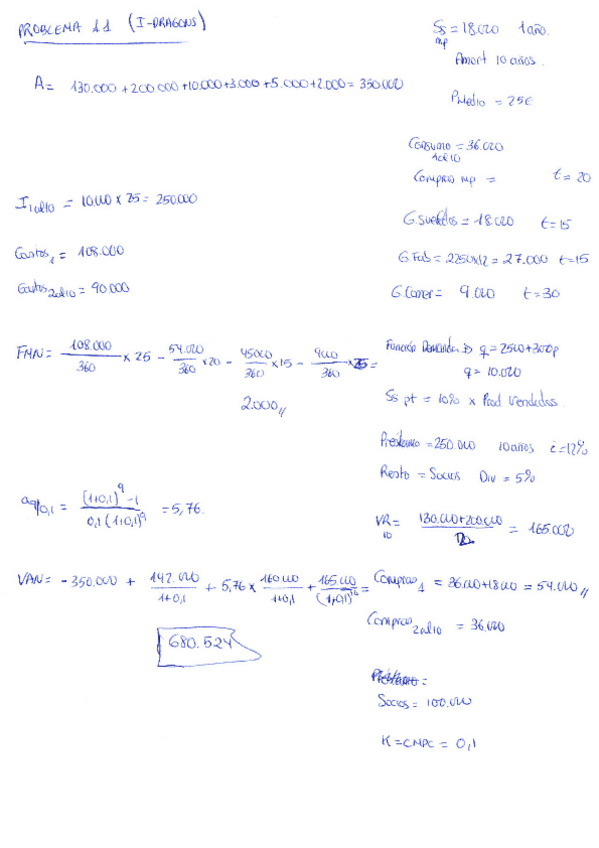 PROBLEMA 11 (I-DRAGONS)
A = 130.000 + 200.000 + 10.000 + 3.000 + 5.000 + 2.000 = 350.000
I 1 al 10 = 10.000 x 25 = 250.000
Gastos 1 = 108.000
Gastos 2 al 10 = 90.000
FMN = 108.000/360 x 25 - 54.000/360 x 20 - 45000/360 x 15 - 9000/360 x =
2.000 //
a 9 0,1 = (1+0,1)^9 - 1 / 0,1 (1+0,1)^9 = 5,76.
VAN = - 350.000 + 142.000/1+0,1 + 5,76 x 160.000/1+0,1 + 165.000/(1+0,1)^10 =
680.524
Ss mp = 18.000 1 año.
Amort 10 años.
PMedio = 25€
Consumo 1 al 10 = 36.000
Compras mp = t = 20
G. sueldos = 18.000 t = 15
G Fab = 2250x12 = 27.000 t = 15
G. Comer = 9.000 t = 30
Función Demanda q = 2500 + 300p
q = 10.000
Ss pt = 10% x Prod Vendados.
Préstamo = 250.000 10 años i = 12%
Resto = Socios Div = 5%
VR 10 = 130.000 + 200.000 / = 165.000
Compras 1 = 36.000 + 18.000 = 54.000 //
Compras 2 al 10 = 36.000
Préstamo =
Socios = 100.000
K = CMPC = 0,1